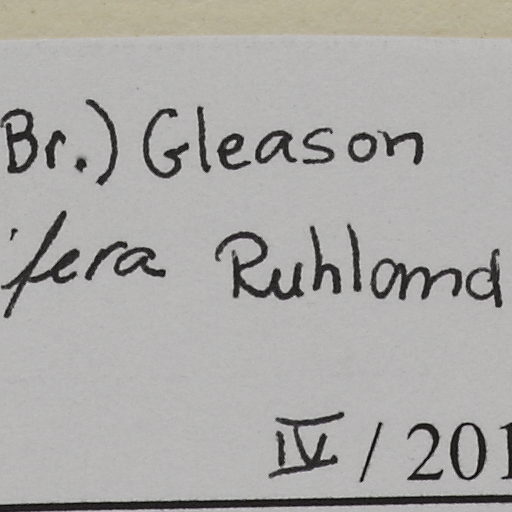 Br.) Gleason
ifera Ruhlamd
IV / 201